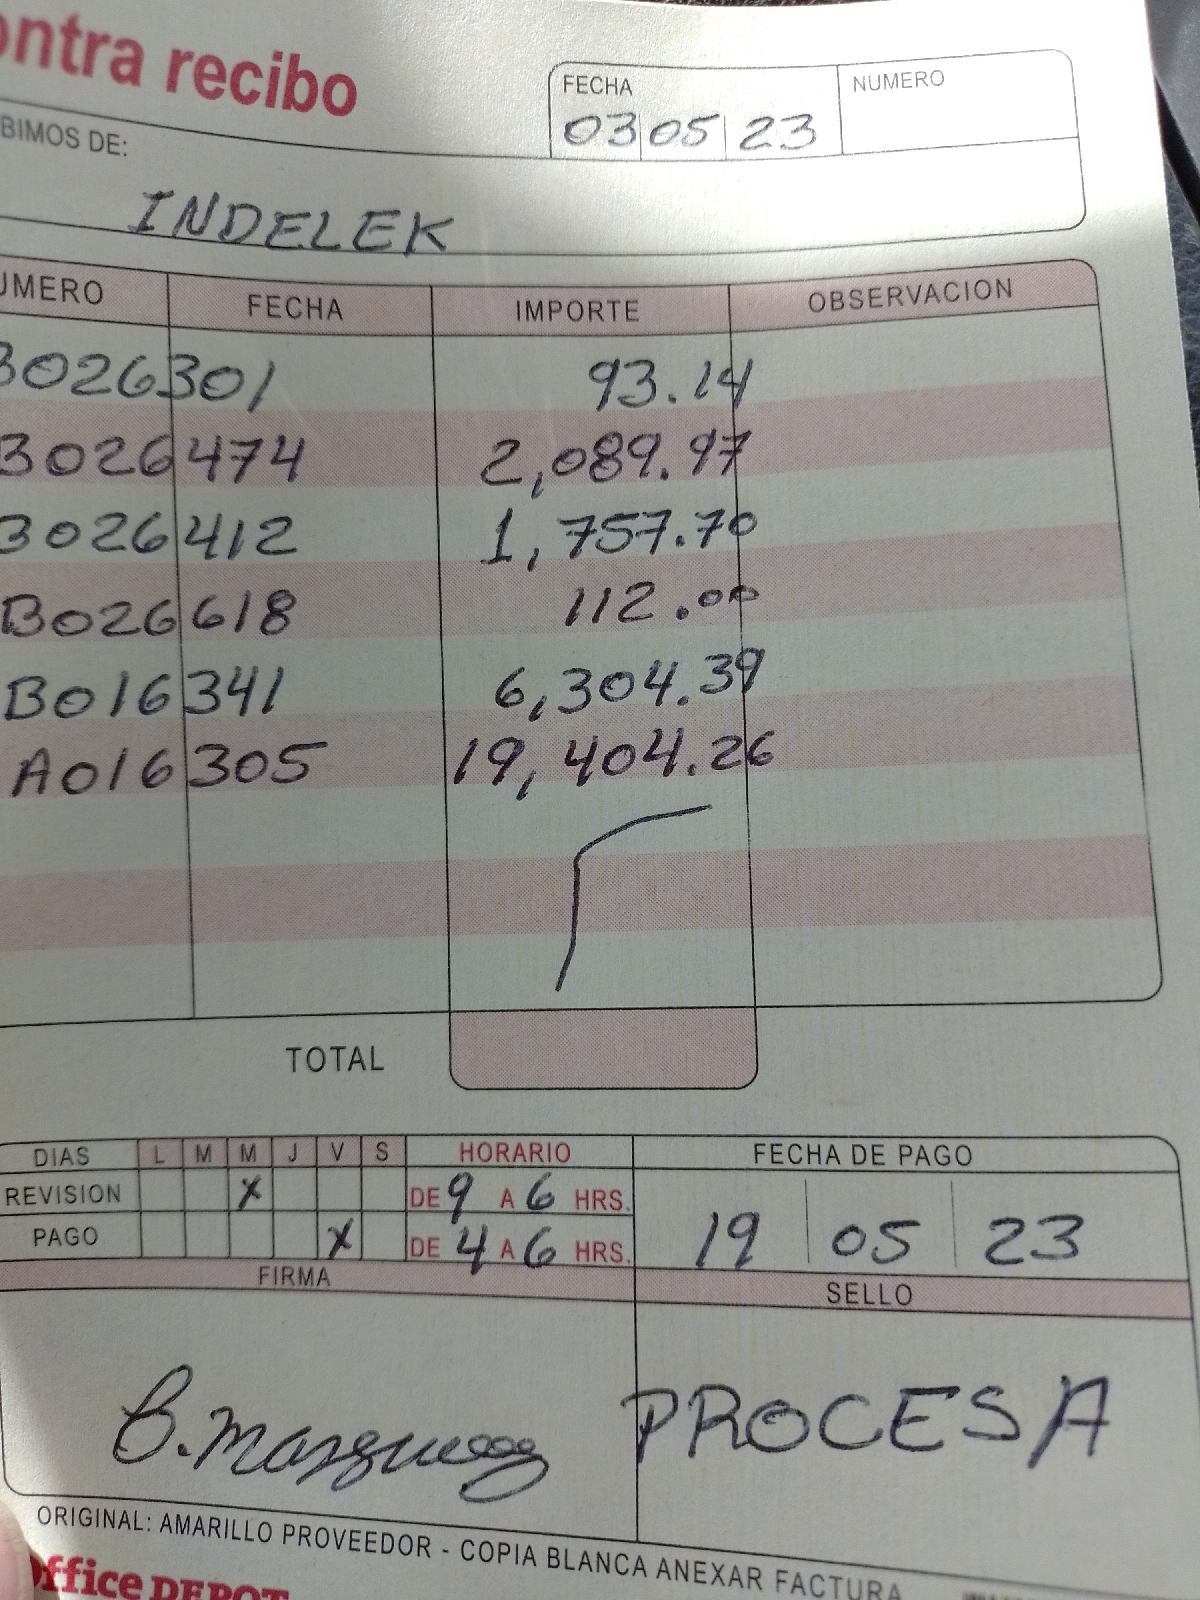 ontra recibo
FECHA NUMERO
03 05 23
BIMOS DE:
INDELEK
UMERO FECHA IMPORTE OBSERVACION
B026301 93.14
B026474 2,089.97
B026412 1,757.70
B026618 112.00
B016341 6,304.39
A016305 19,404.26
TOTAL
DIAS L M M J V S HORARIO FECHA DE PAGO
REVISION X DE 9 A 6 HRS.
PAGO X DE 4 A 6 HRS. 19 05 23
FIRMA SELLO
B. Marquez PROCESA
ORIGINAL: AMARILLO PROVEEDOR - COPIA BLANCA ANEXAR FACTURA
Office DEPOT